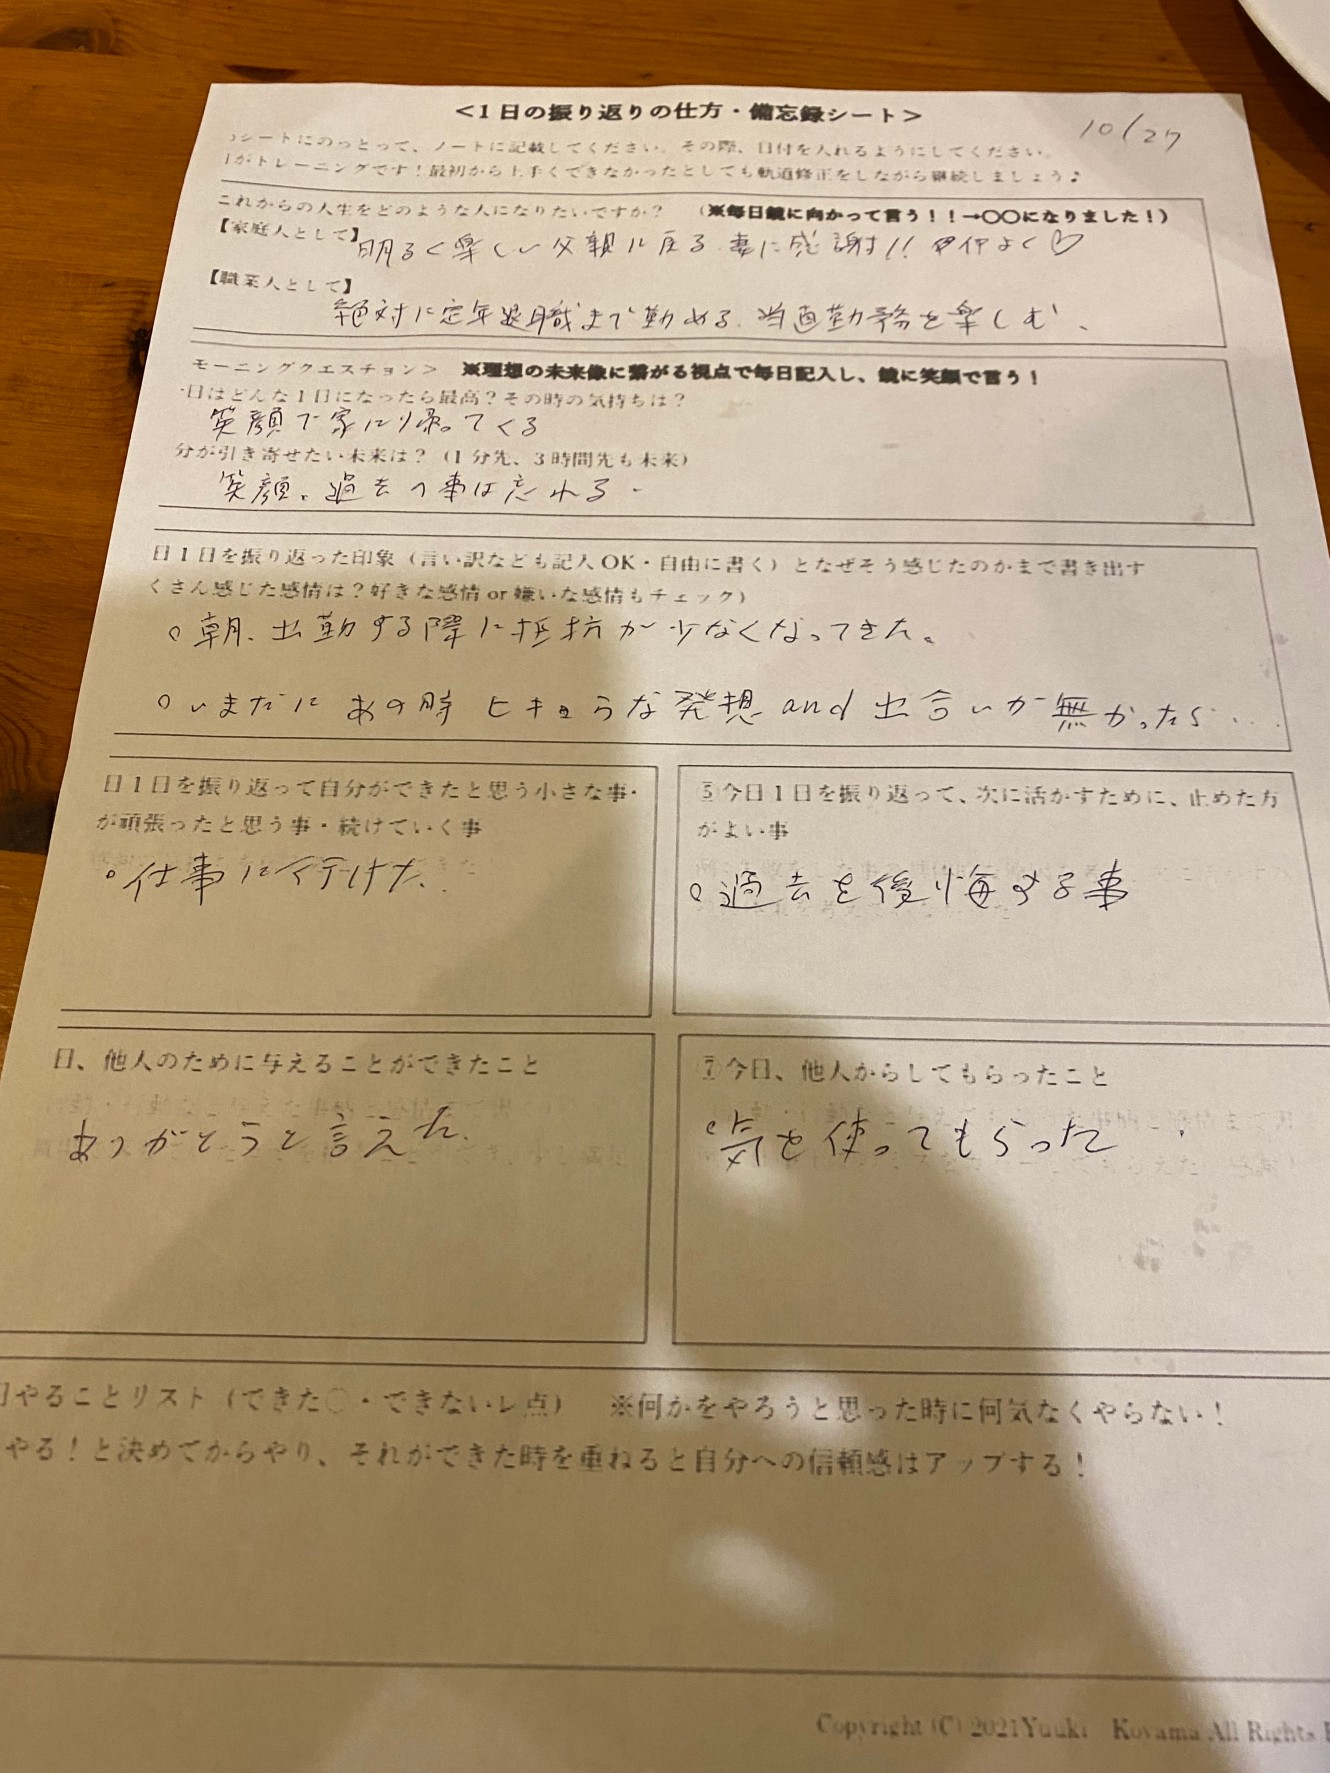 <1日の振り返りの仕方・備忘録シート>
10/27
シートにのっとって、ノートに記載してください。その際、日付を入れるようにしてください。
がトレーニングです！最初から上手くできなかったとしても軌道修正をしながら継続しましょう♪
これからの人生をどのような人になりたいですか？ （※毎日鏡に向かって言う！！→〇〇になりました！）
【家庭人として】明るく楽しい父親に戻る.妻に感謝!! 仲よく♡
【職業人として】
絶対に定年退職まで勤める.当直勤務を楽しむ、
モーニングクエスチョン＞ ※理想の未来像に繋がる視点で毎日記入し、鏡に笑顔で言う！
日はどんな1日になったら最高？その時の気持ちは？
笑顔で家に帰ってくる
分が引き寄せたい未来は？（1分先、3時間先も未来）
笑顔。過去の事は忘れる
日1日を振り返った印象（言い訳なども記入OK・自由に書く）となぜそう感じたのかまで書き出す
くさん感じた感情は？好きな感情or嫌いな感情もチェック）
○朝、出勤する際に抵抗が少なくなってきた。
○いまだに あの時 な発想 and 出会いが無かったら…
日1日を振り返って自分ができたと思う小さな事・
が頑張ったと思う事・続けていく事
○仕事に行けた..
⑤今日1日を振り返って、次に活かすために、止めた方
がよい事
○過去を後悔する事
日、他人のために与えることができたこと
ありがとうと言えた.
⑦今日、他人からしてもらったこと
○気を使ってもらった
日やることリスト（できた○・できないレ点） ※何かをやろうと思った時に何気なくやらない！
やる！と決めてからやり、それができた時を重ねると自分への信頼感はアップする！
Copyright (C) 2021Yuuki Koyama All Rights